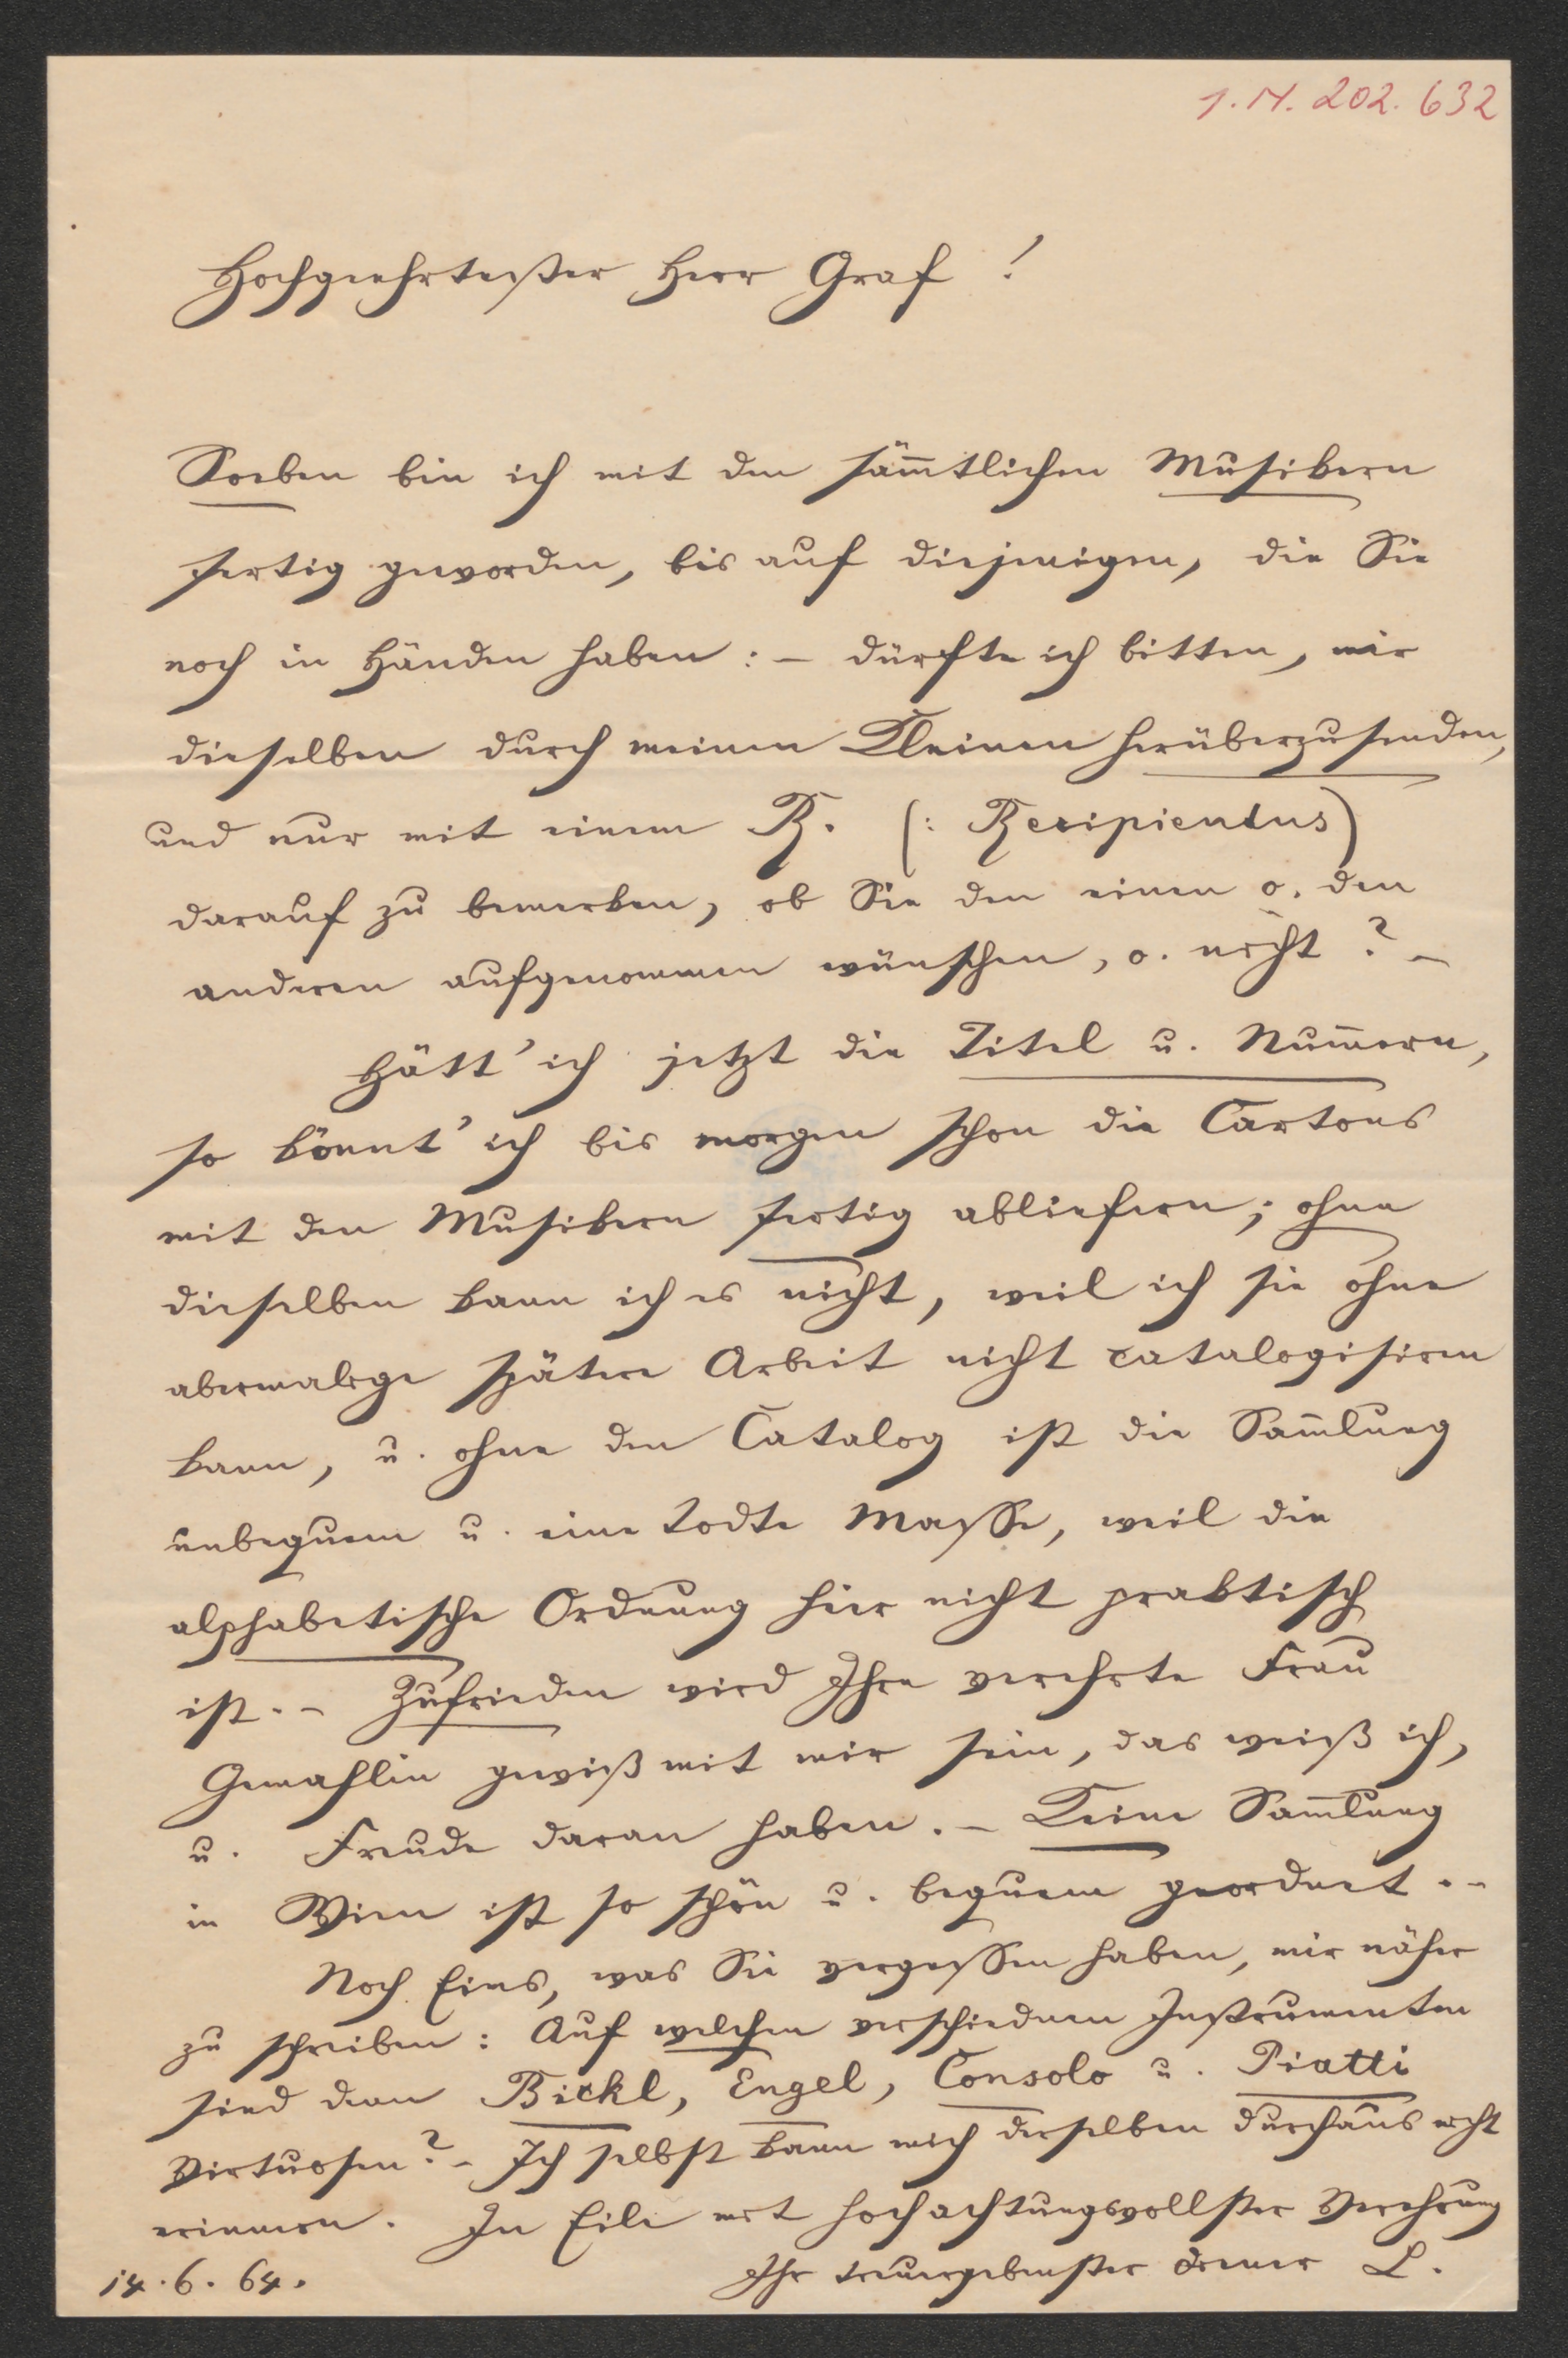 I. N. 202.632
Hochgeehrtester Herr Graf!
Soeben bin ich mit den sämm̅tlichen Musikern
fertig geworden, bis auf diejenigen, die Sie
noch in Händen haben: – dürfte ich bitten, mir
dieselben durch meinen Kleinen herüberzusenden,
und nur mit einem R. (: Recipiendus)
darauf zu bemerken, ob Sie den einen o. den
anderen aufgenommen wünschen, o. nicht? –
Hätt' ich jetzt die Titel u. Num̅ern,
so könnt' ich bis morgen schon die Cartons
mit den Musikern fertig abliefern; ohne
dieselben kann ich es nicht, weil ich sie ohne
abermalige spätere Arbeit nicht catalogisiren
kann, u. ohne den Catalog ist die Sam̅lung
unbequem u. eine todte Masse, weil die
alphabetische Ordnung hier nicht praktisch
ist. – Zufrieden wird Ihre verehrte Frau
Gemahlin gewiß mit mir sein, das weiß ich,
u. Freude daran haben. – Keine Sam̅lung
in Wien ist so schön u. bequem geordnet. –
Noch Eins, was Sie vergessen haben, mir näher
zu schreiben: Auf welchen verschiednen Instrumenten
sind denn Bickl, Engel, Consolo u. Piatti
Virtuosen? – Ich selbst kann mich derselben durchaus nicht
erinnern. In Eile mit hochachtungsvollster Verehrung
Ihr treuergebenster Diener L.
14. 6. 64.